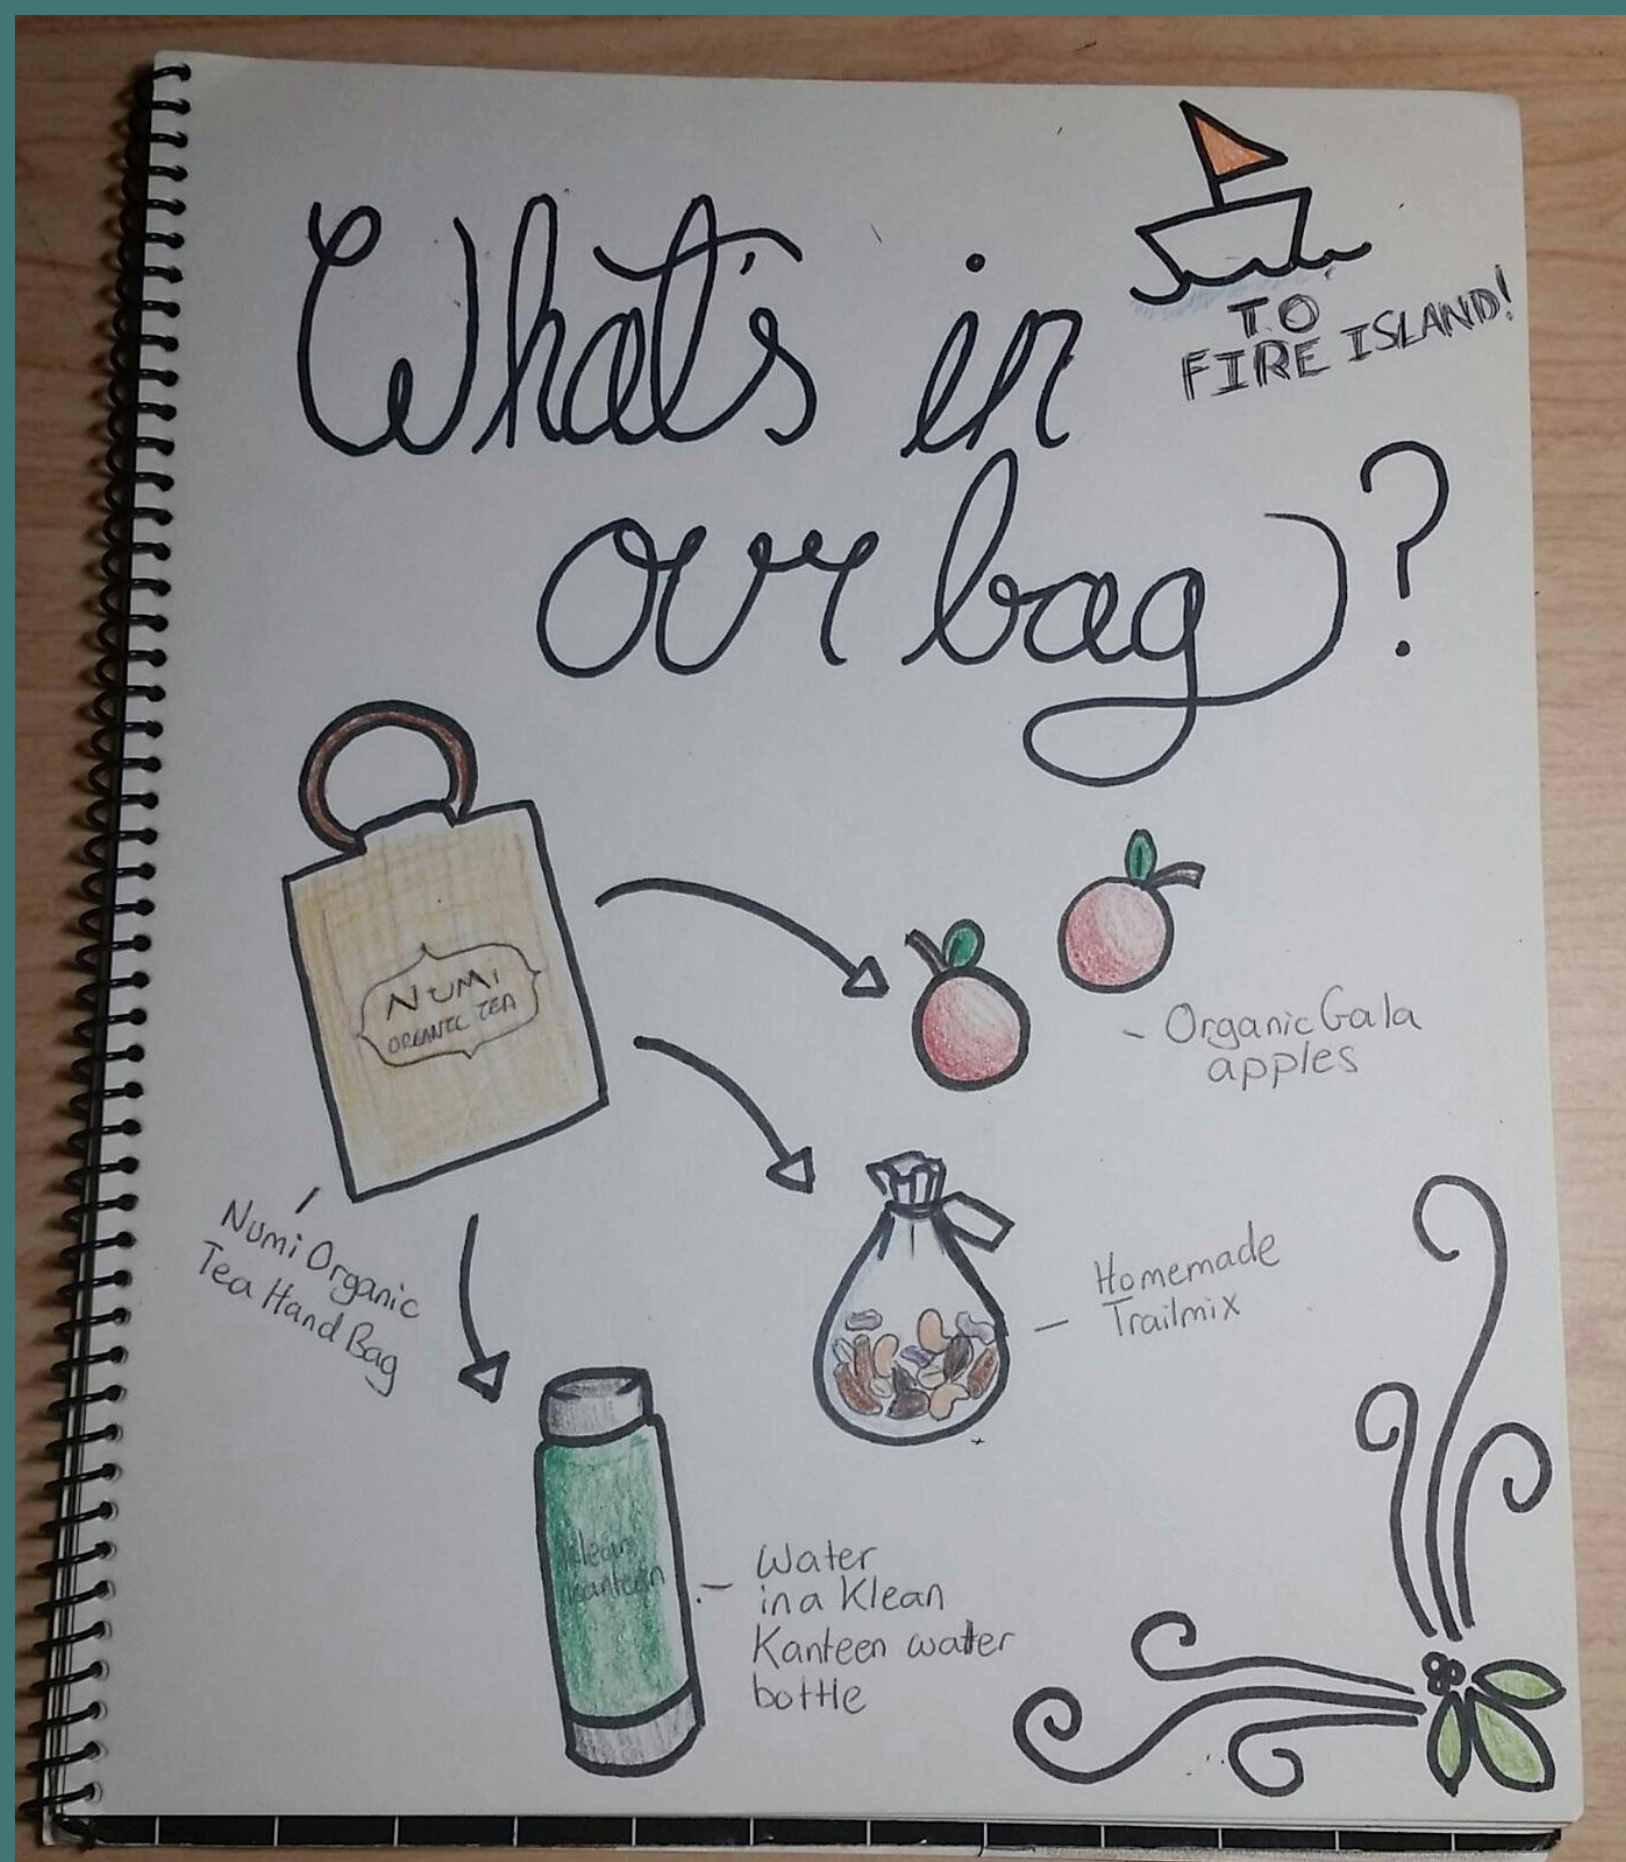 What's in
our bag?
TO
FIRE ISLAND!
NUMI
ORGANIC TEA
Numi Organic
Tea Hand Bag
- Organic Gala
apples
- Homemade
Trailmix
Klean
Kanteen
- Water
in a Klean
Kanteen water
bottle